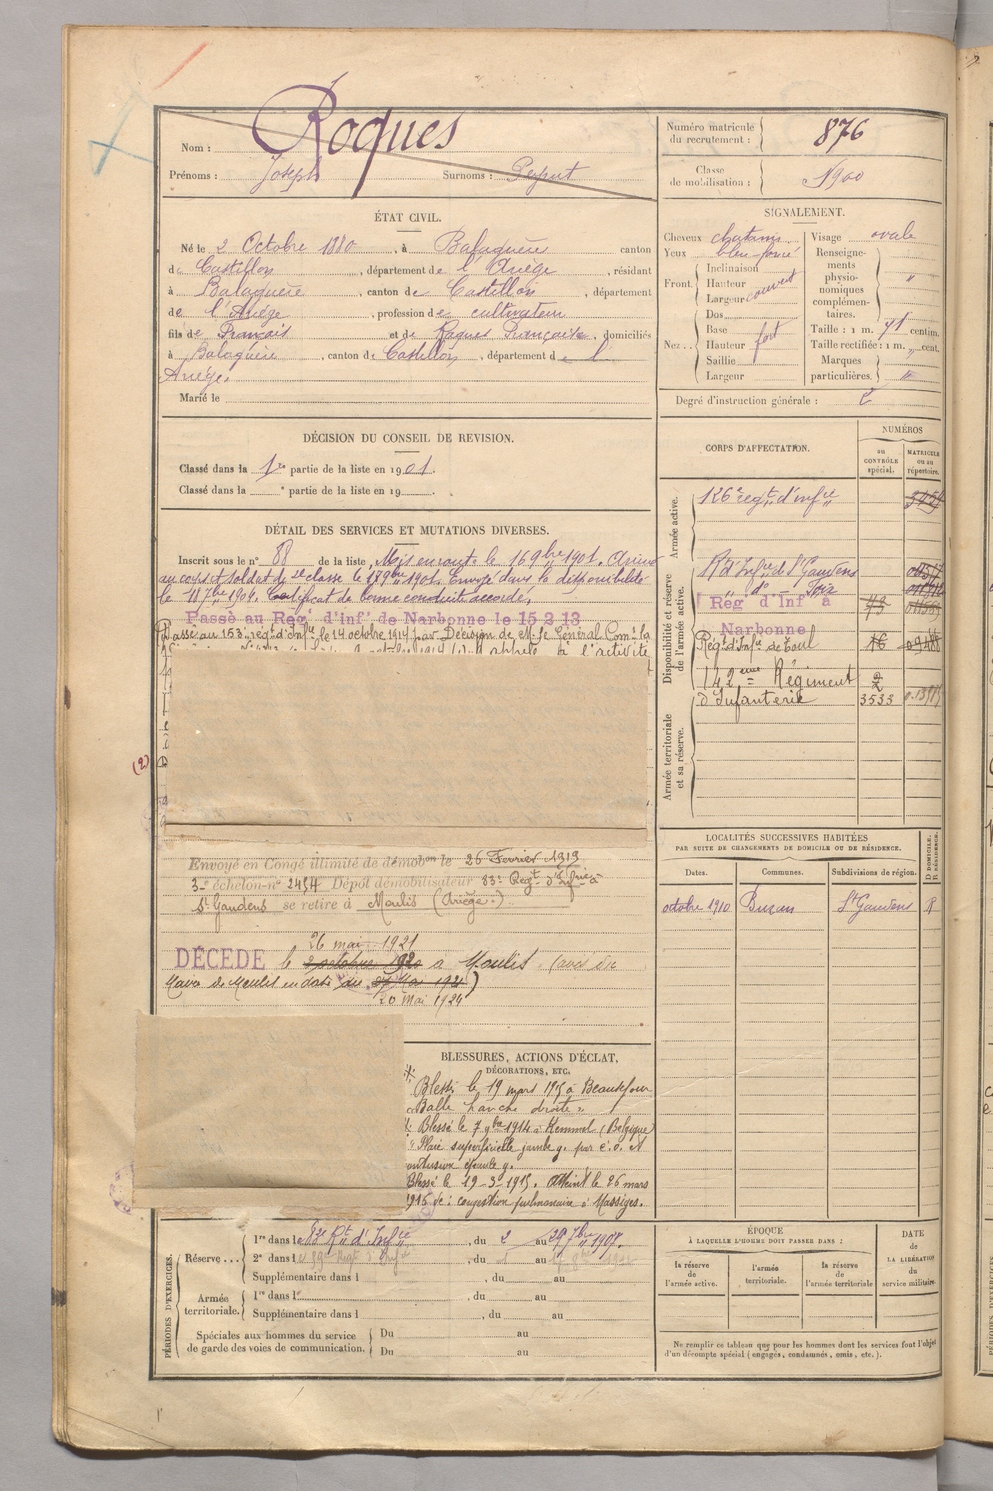 Nom : Roques
Prénoms : Joseph Surnoms :
Numéro matricule du recrutement : 876
Classe de mobilisation : 1900
ÉTAT CIVIL.
Né le 2 Octobre 1880, à Balaguère canton
de Castillon, département de l'Ariège, résidant
à Balaguère, canton de Castillon, département
de l'Ariège, profession de cultivateur
fils de François et de Roques Françoise, domiciliés
à Balaguère, canton de Castillon, département de l'
Ariège.
Marié le
SIGNALEMENT.
Cheveux chatains
Yeux bleu foncé
Front. Inclinaison
Hauteur
Largeur couvert
Nez.. Dos
Base
Hauteur fort
Saillie
Largeur
Visage ovale
Renseignements physionomiques complémentaires. "
Taille : 1 m. 71 centim.
Taille rectifiée : 1 m. " cent.
Marques particulières. "
Degré d'instruction générale : 2
DÉCISION DU CONSEIL DE REVISION.
Classé dans la 1re partie de la liste en 1901.
Classé dans la e partie de la liste en 19
DÉTAIL DES SERVICES ET MUTATIONS DIVERSES.
Inscrit sous le n° 88 de la liste, Mis en route le 16 9bre 1901. Arrivé
au corps et soldat de 2e classe le 17 9bre 1901. Envoyé dans la disponibilité
le 18 7bre 1904. Certificat de bonne conduite accordé.
Passé au Rég' d'inf' de Narbonne le 15 2 13
Passé au 153e régt d'Infie le 14 octobre 1914 par Décision de M. le Général Comt la
à l'activité
(2)
Envoyé en Congé illimité de démobon le 26 Fevrier 1919
3e échelon n° 2454 Dépôt démobilisateur 83e Regt d'Infrie à
St Gaudens se retire à Moulis (Ariège)
26 mai 1921
DÉCÉDÉ le 2 octobre 1920 à Moulis (avis du
Maire de Moulis en date du 27 Mai 1921)
20 Mai 1924
CORPS D'AFFECTATION.
NUMÉROS
au CONTRÔLE spécial.
MATRICULE ou au répertoire.
Armée active.
126e regt d'infie
Disponibilité et réserve de l'armée active.
R. d'Infie de St Gaudens
" d° Foix
Rég' d'Inf' à
Narbonne
Régt d'Infie de Toul 16
142eme Régiment
d'Infanterie 3533
Armée territoriale et sa réserve.
LOCALITÉS SUCCESSIVES HABITÉES
PAR SUITE DE CHANGEMENTS DE DOMICILE OU DE RÉSIDENCE.
Dates. Communes. Subdivisions de région. D. DOMICILE. R. RÉSIDENCE.
octobre 1910 Buzan St Gaudens R
BLESSURES, ACTIONS D'ÉCLAT,
DÉCORATIONS, ETC.
Blessé le 19 mars 1915 à Beauséjour
Balle hanche droite "
Blessé le 7 9bre 1914 à Kemmel (Belgique)
Plaie superficielle jambe g. par é. o. et
contusion épaule g.
Blessé le 19-3-1915. Atteint le 26 mars
1916 de : congestion pulmonaire à Massiges.
PÉRIODES D'EXERCICES.
Réserve... 1re dans le 83e Rt d'Infie, du 2 au 29 7bre 1907.
2e dans le, du au
Supplémentaire dans l, du au
Armée territoriale. 1re dans l, du au
Supplémentaire dans l, du au
Spéciales aux hommes du service de garde des voies de communication. Du au
Du au
ÉPOQUE
À LAQUELLE L'HOMME DOIT PASSER DANS :
la réserve de l'armée active.
l'armée territoriale.
la réserve de l'armée territoriale
DATE de LA LIBÉRATION du service militaire.
Ne remplir ce tableau que pour les hommes dont les services font l'objet
d'un décompte spécial (engagés, condamnés, omis, etc.).